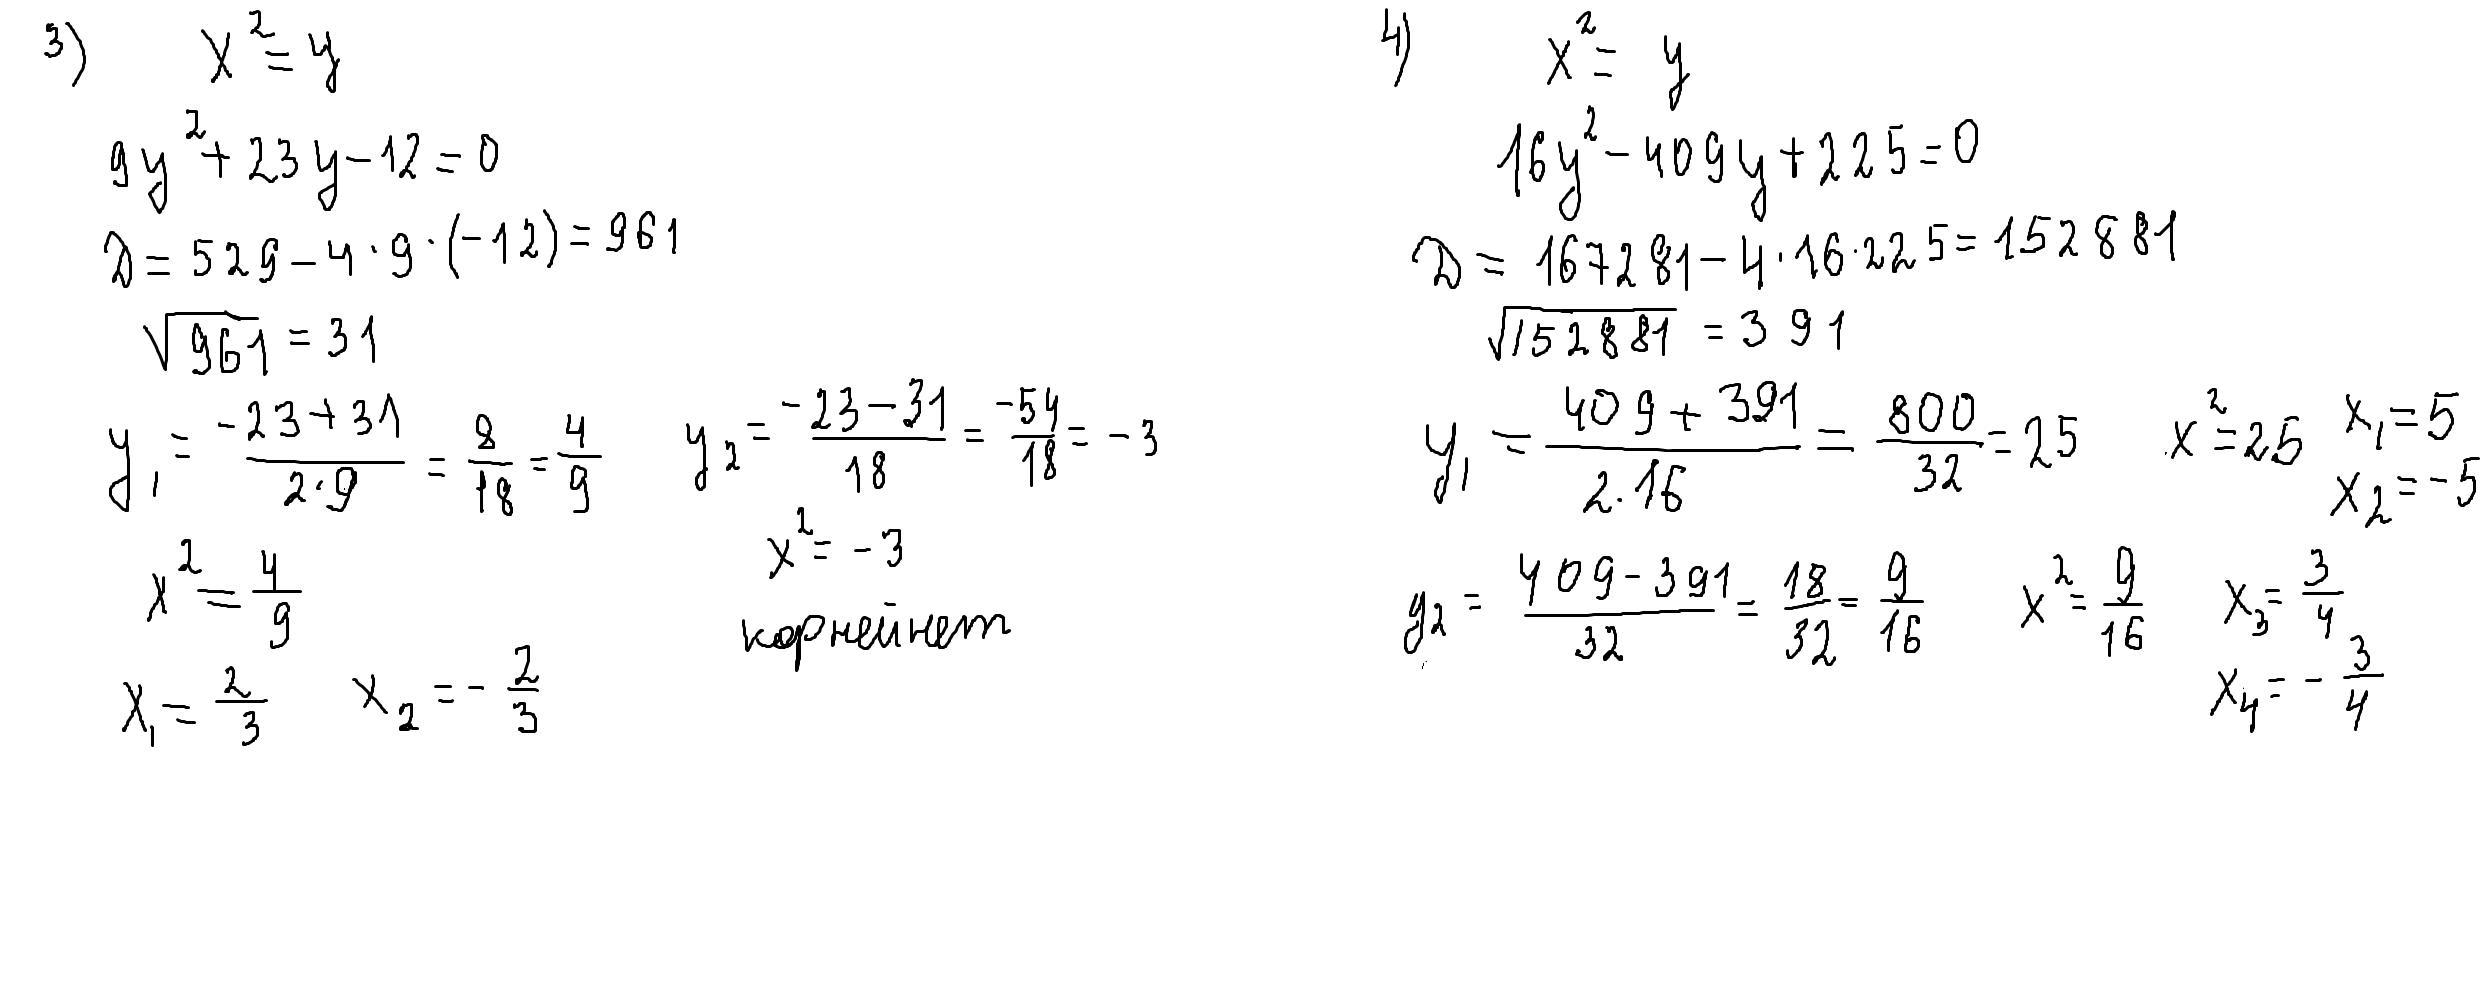 3) x² = y
9y² + 23y - 12 = 0
D = 529 - 4 · 9 · (-12) = 961
√961 = 31
y₁ = (-23 + 31)/(2 · 9) = 8/18 = 4/9
x² = 4/9
x₁ = 2/3 x₂ = - 2/3
y₂ = (-23 - 31)/18 = -54/18 = -3
x² = -3
корнейнет
4) x² = y
16y² - 409y + 225 = 0
D = 167281 - 4 · 16 · 225 = 152881
√152881 = 391
y₁ = (409 + 391)/(2 · 16) = 800/32 = 25 x² = 25 x₁ = 5
x₂ = -5
y₂ = (409 - 391)/32 = 18/32 = 9/16 x² = 9/16 x₃ = 3/4
x₄ = - 3/4